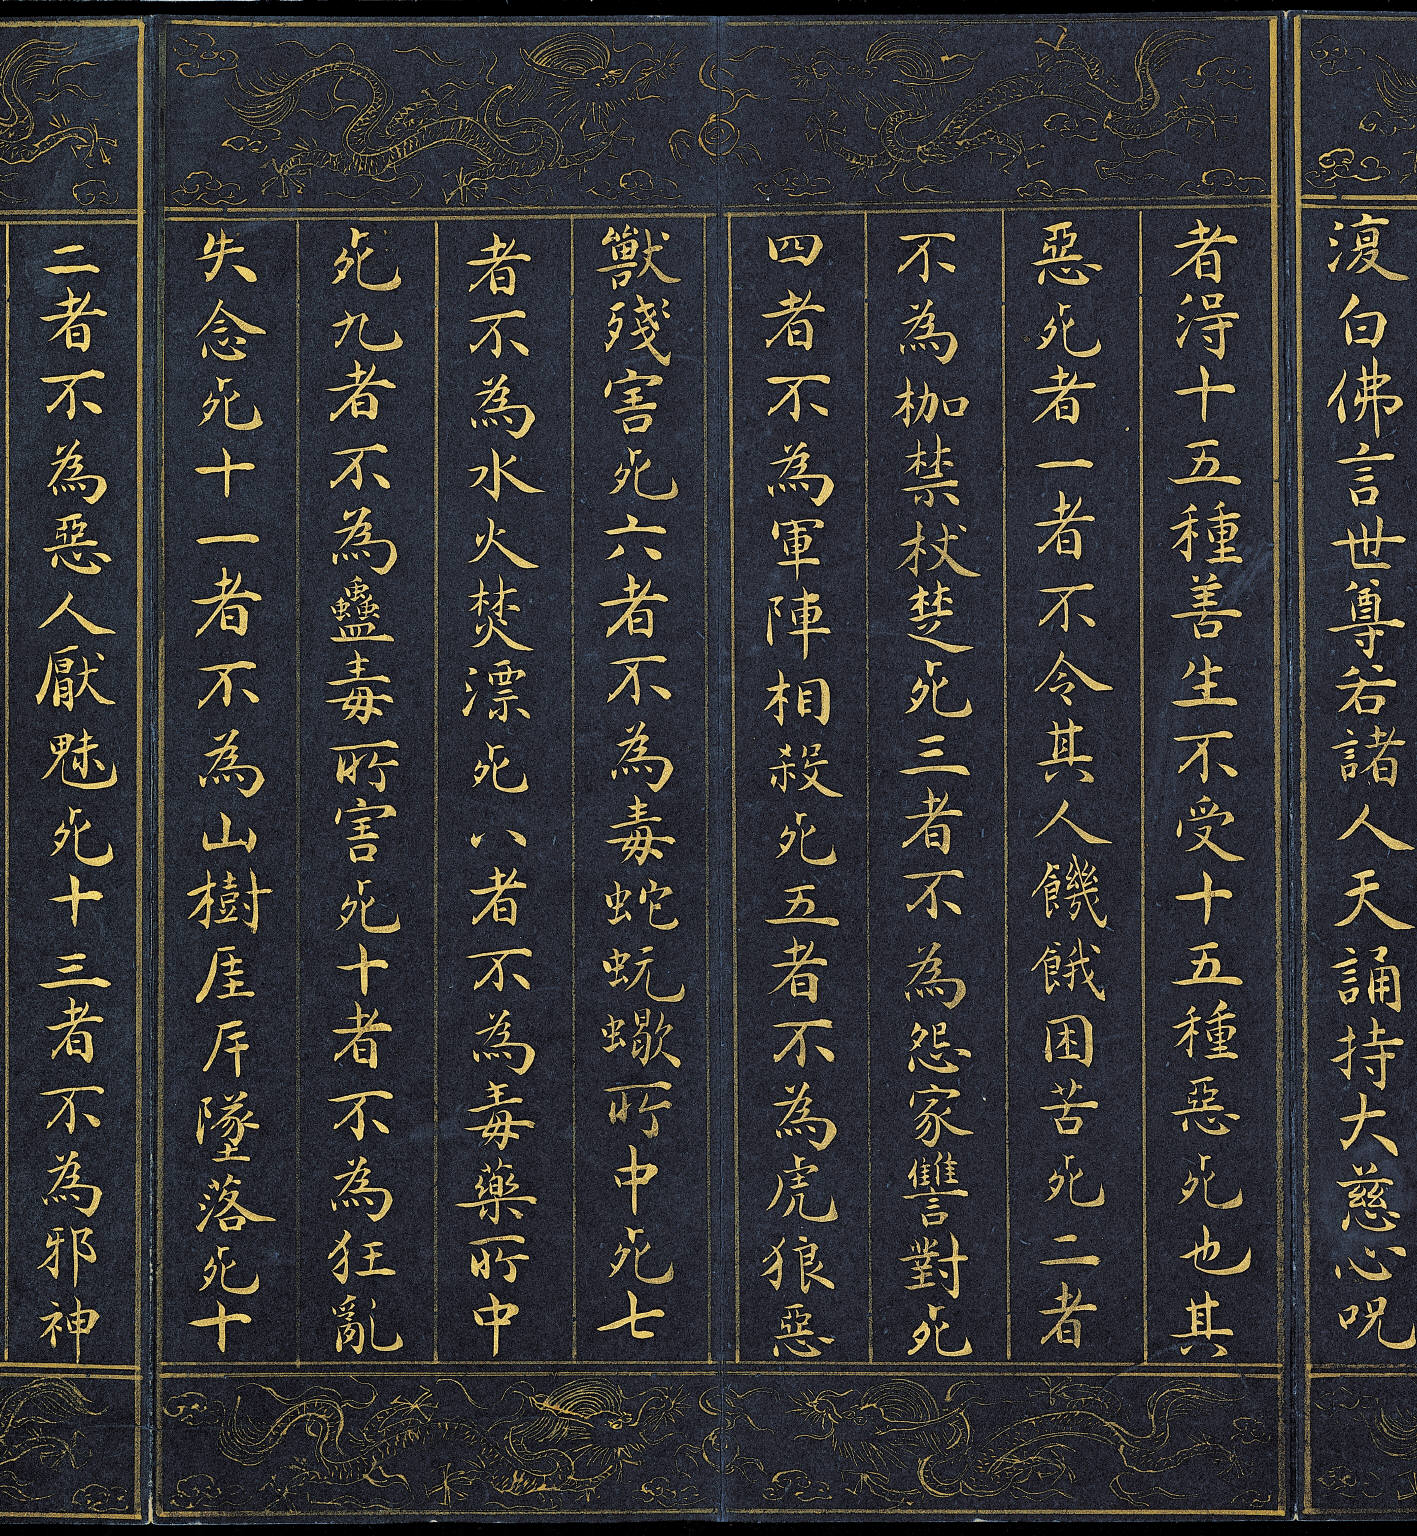 復白佛言世尊若諸人天誦持大慈心呪
者得十五種善生不受十五種惡死也其
惡死者一者不令其人饑餓困苦死二者
不為枷禁杖楚死三者不為怨家讐對死
四者不為軍陣相殺死五者不為虎狼惡
獸殘害死六者不為毒蛇蚖蠍所中死七
者不為水火焚漂死八者不為毒藥所中
死九者不為蠱毒所害死十者不為狂亂
失念死十一者不為山樹厓岸墜落死十
二者不為惡人厭魅死十三者不為邪神